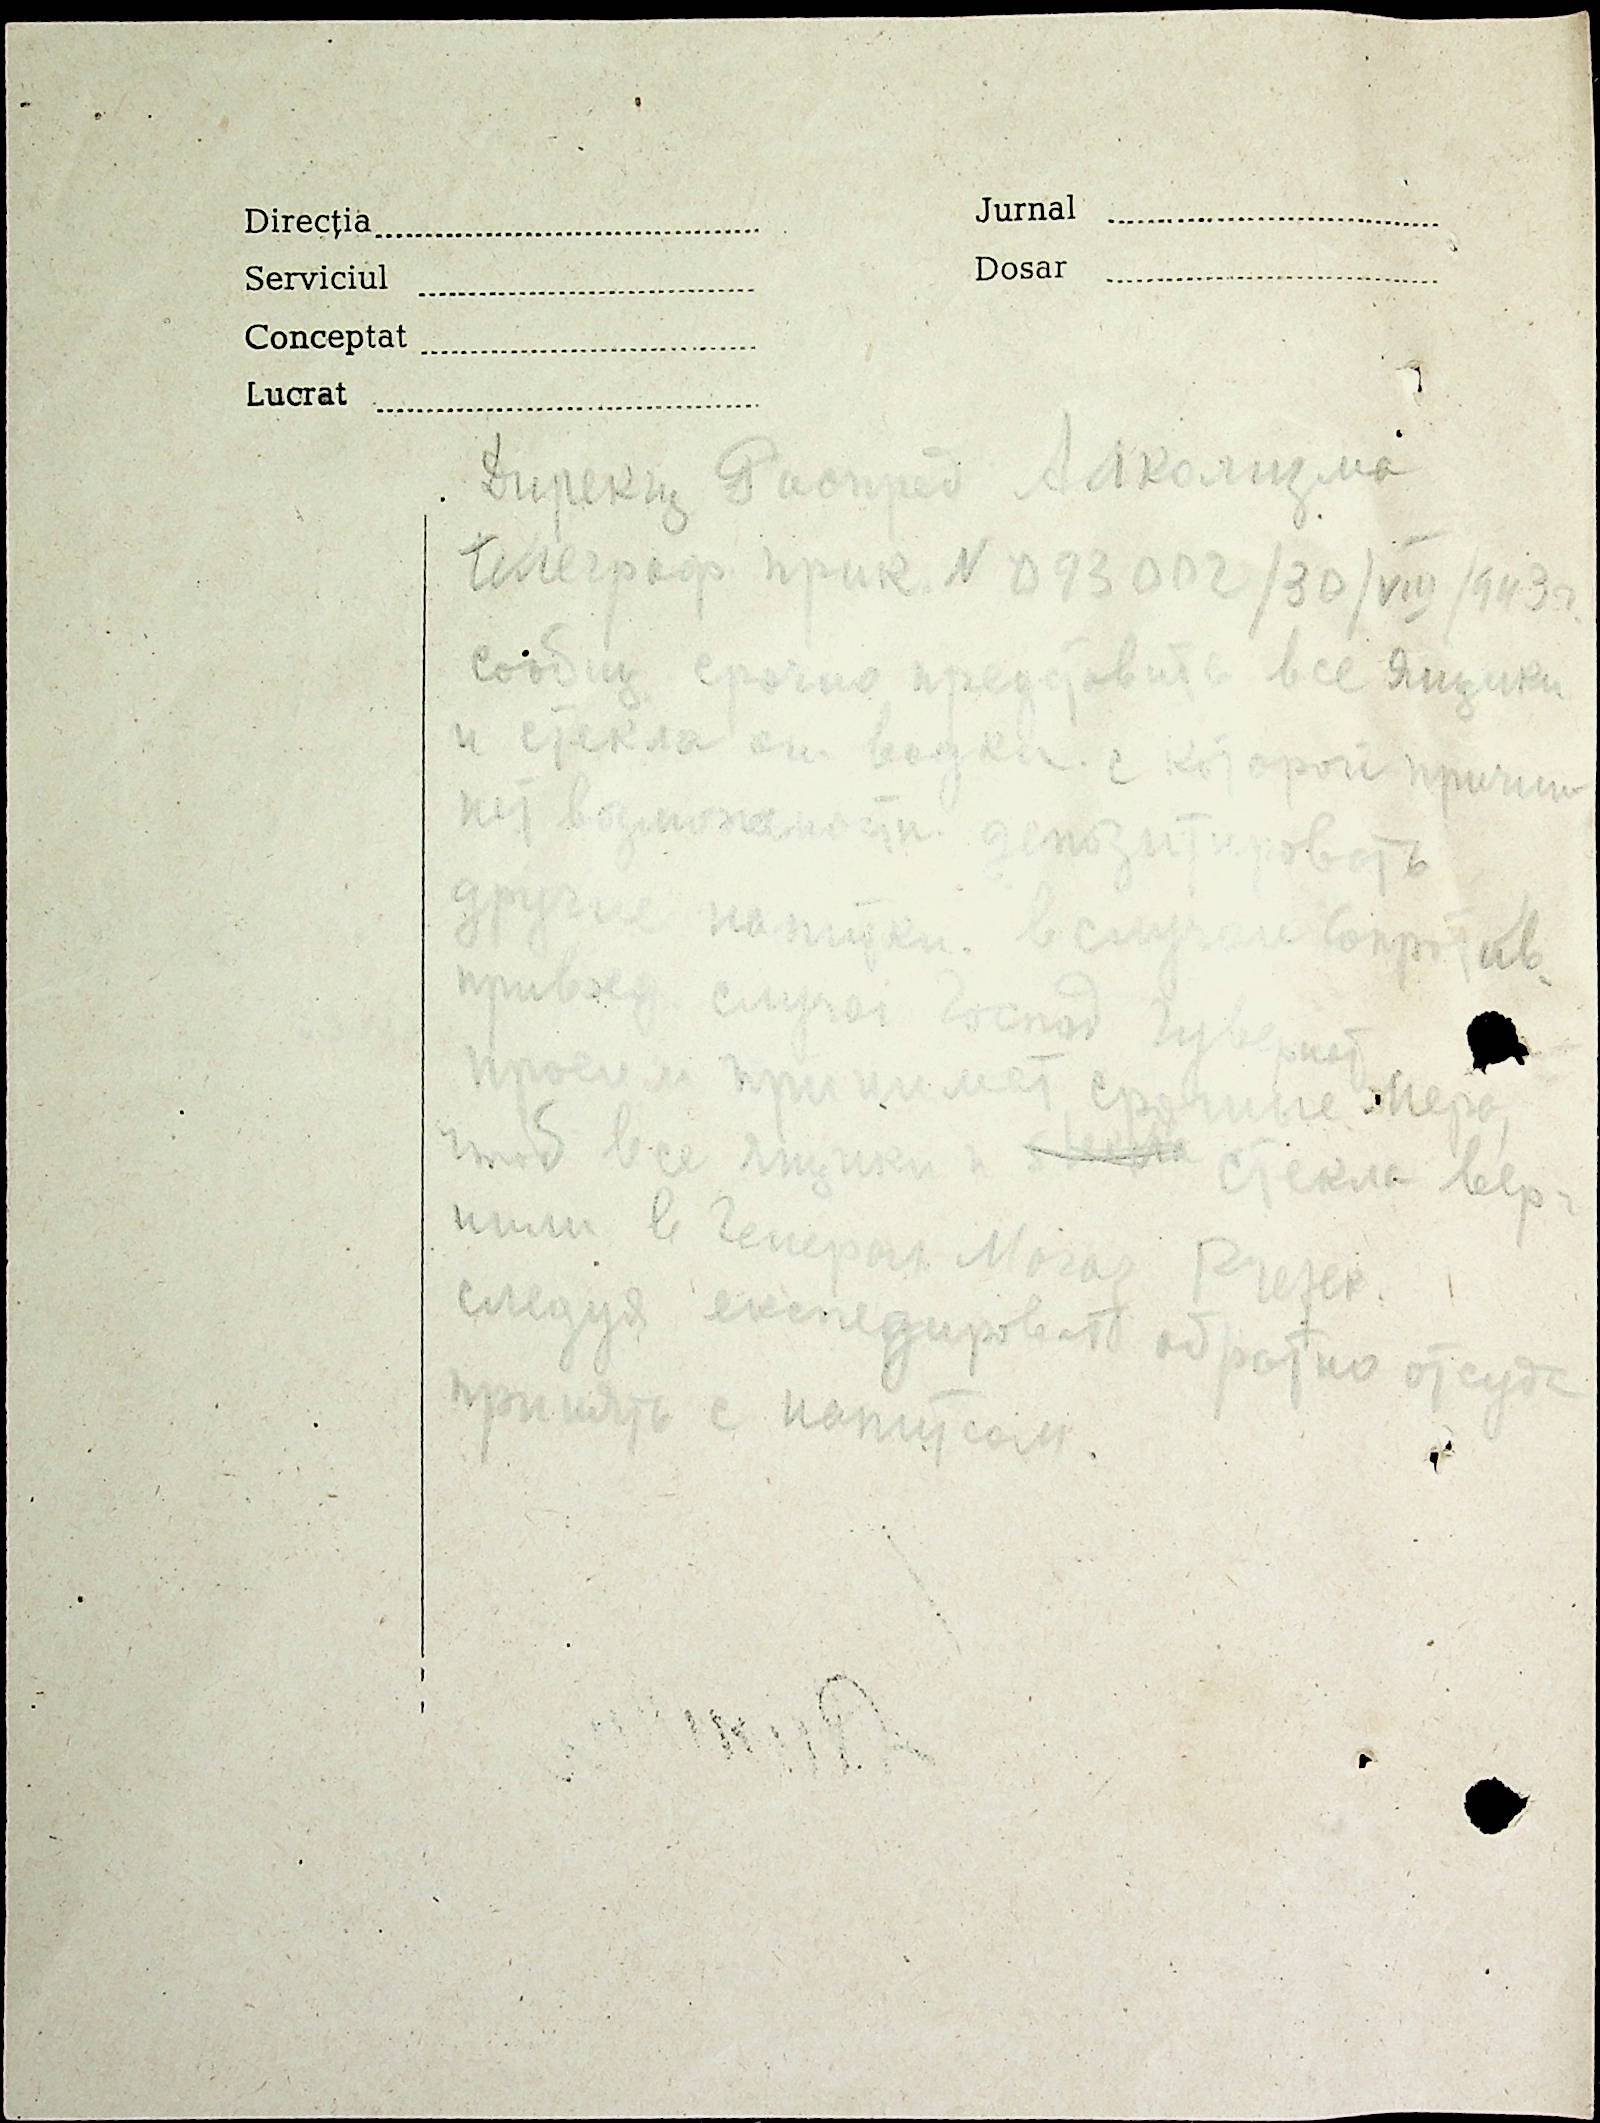 Direcția
Serviciul
Conceptat
Lucrat
Jurnal
Dosar
Дирекц Распред Алколизма
Телеграф. прик. N 093002/30/VIII/943г.
сообщ. срочно представить все ящики
и стекла от водки. с которой причин
нет возможности депозитировать
другие напитки. в случаи сопротив.
случаi Господ Губернат
просим принимат срочные мера,
чтоб все ящики и стекла вер-
нули в Генерал Магаз
следуя експедировать обратно отсуда
принять с напитсом.